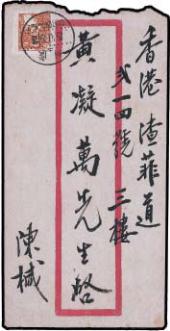 香港渣菲道
弍一四號 三樓
黃凝萬先生啓
陳棫